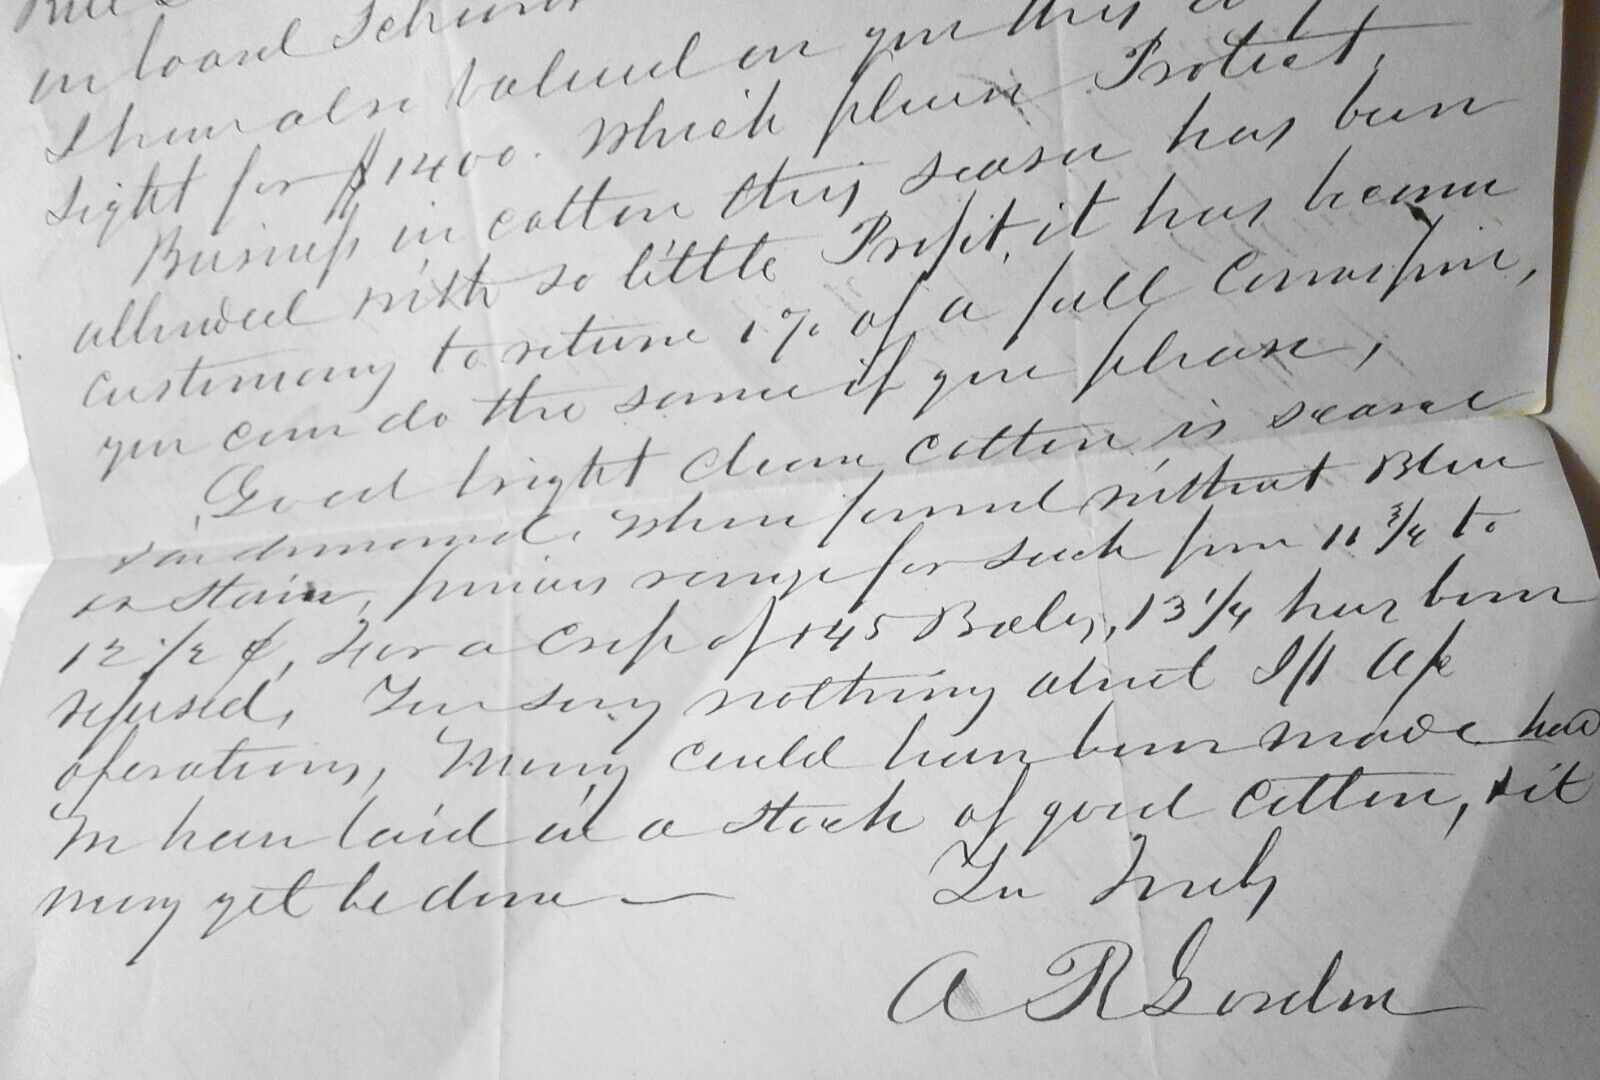 on board Schooner
I have also valued on you this day
sight for $1400. Which please Protect,
Business in cotton this season has been
attended with so little Profit, it has become
customary to return 1% of a full Commission,
you can do the same if you please,
Good bright clean cotton is scarce
& in demand. When found without Blue
or stain, prices range for such from 11 3/4 to
12 1/2 ¢, For a Crop of 145 Bales, 13 1/4 has been
refused, You say nothing about
operations, Money could have been made had
We have laid in a stock of good Cotton, & it
may yet be done —
Yrs Truly
A R Gordon